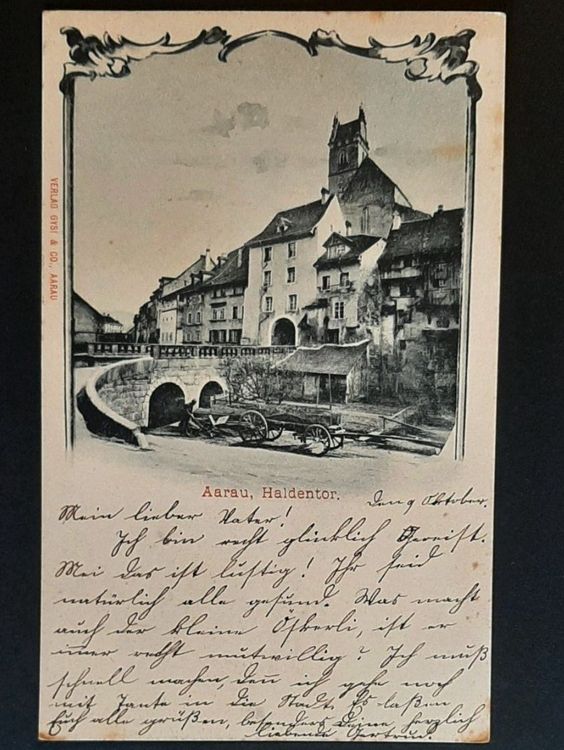 VERLAG GYSI & CO., AARAU
Aarau, Haldentor.
Den 9 Oktober.
Mein lieber Vater!
Ich bin recht glücklich gereist.
Mei das ist lustig! Ihr seid
natürlich alle gesund. Was macht
auch der kleine Öskerli, ist er
immer recht mutwillig? Ich muß
schnell machen, denn ich gehe noch
mit Tante in die Stadt. Es laßen
Euch alle grüßen, besonders Deine herzlich
liebende Gertrud.